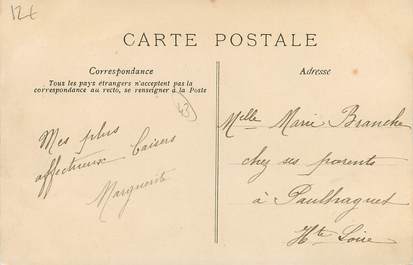 12€
CARTE POSTALE
Correspondance
Tous les pays étrangers n'acceptent pas la
correspondance au recto, se renseigner à la Poste
43
Mes plus
affectueux baisers
Marguerite
Adresse
Melle Marie Branche
chez ses parents
à Paulhaguet
Hte Loire